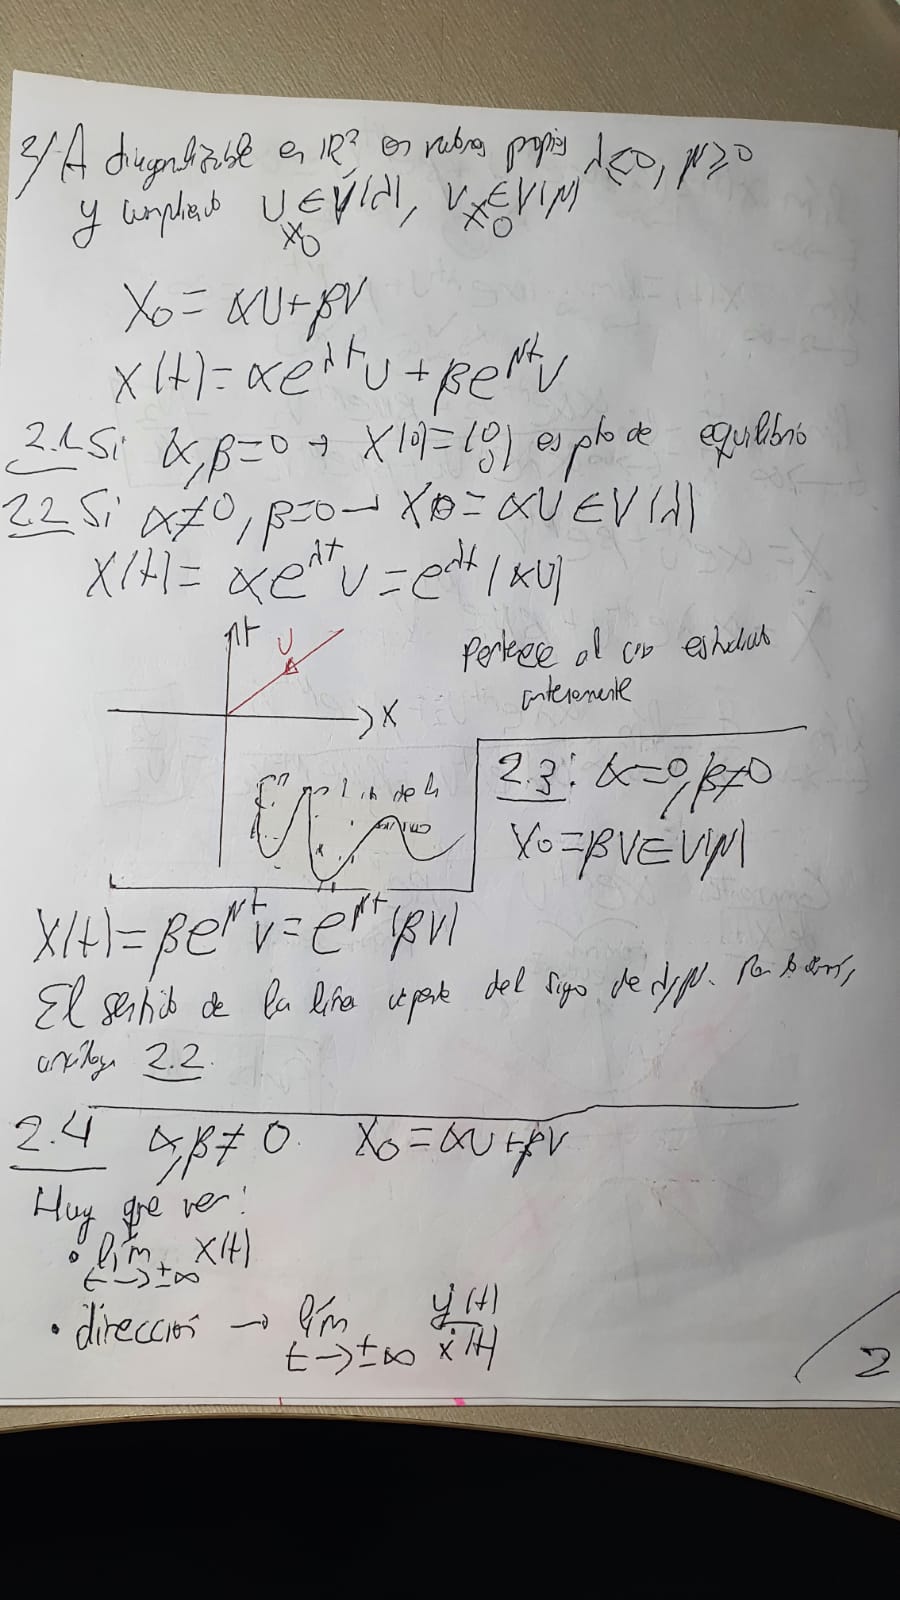 2/ A diagonalizable en IR² con valores propios λ≤0, μ≥0
y cumpliendo U∈V(λ), V∈V(μ)
X0 X0
X0 = αU+βV
X(t)=αe^λt U + βe^μt V
2.1 Si α,β=0 → X(0)=(0 0) es pto de equilibrio
2.2 Si α≠0, β=0 → X0 = αU ∈ V(λ)
X(t)= αe^λt U = e^λt (αU)
t
U
X
Pertenece al caso estudiado
anteriormente
2.3: α=0, β≠0
X0=βV∈V(μ)
X(t)= βe^μt V = e^μt (βV)
El sentido de la línea depende del signo de λ, μ. Por lo demás,
análogo 2.2.
2.4 α,β≠0. X0=αU+βV
Hay que ver:
• lím t→±∞ X(t)
• dirección → lím t→±∞ ẏ(t)/ẋ(t)
/2